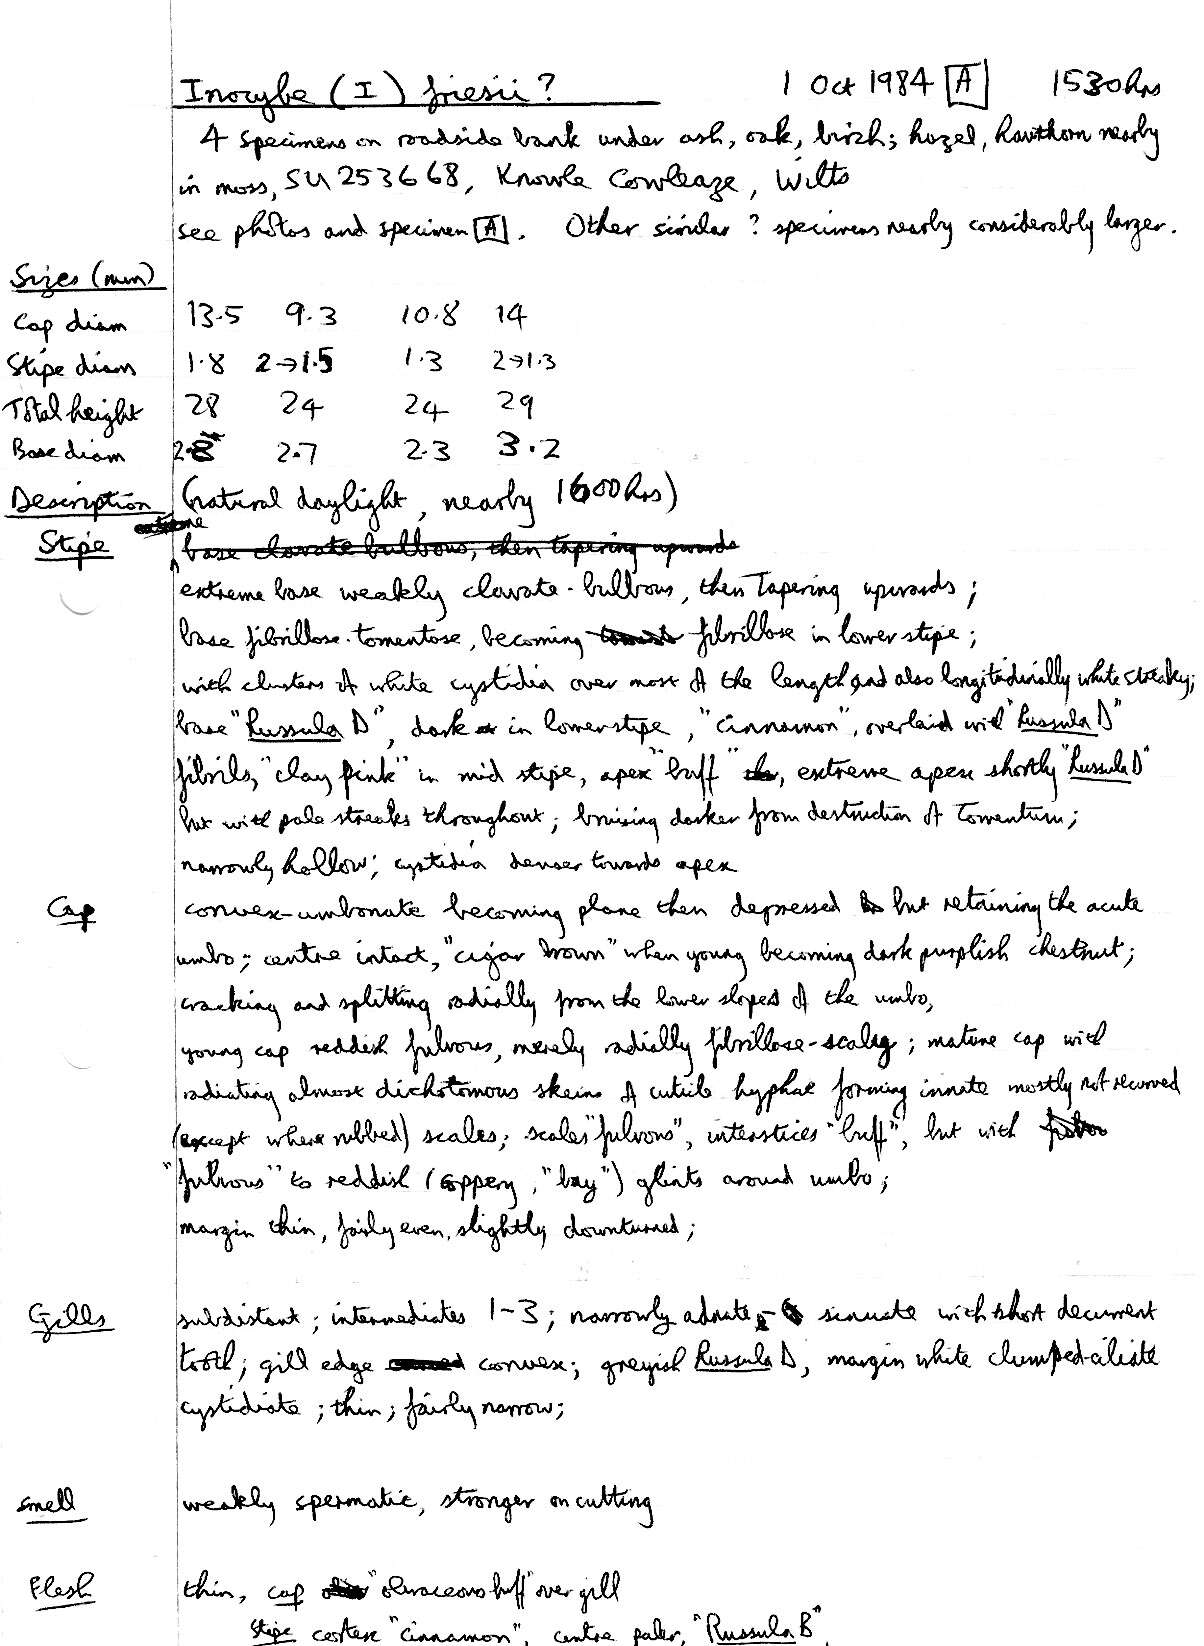 Inocybe (I) friesii? 1 Oct 1984 [A] 1530hrs
4 specimens on roadside bank under ash, oak, birch; hazel, hawthorn nearby
in moss, SU 253668, Knowle Cowleaze, Wilts
see photos and specimen [A]. Other similar? specimens nearby considerably larger.
Sizes (mm)
Cap diam 13.5 9.3 10.8 14
Stipe diam 1.8 2→1.5 1.3 2→1.3
Total height 28 24 24 29
Base diam 2.8 2.7 2.3 3.2
Description (natural daylight, nearby 1600hrs)
Stipe extreme base clavate bulbous, then tapering upwards
extreme base weakly clavate-bulbous, then tapering upwards;
base fibrillose-tomentose, becoming fibrillose in lower stipe;
with clusters of white cystidia over most of the length, and also longitudinally white streaky;
base "Russula D", dark in lower stipe, "cinnamon", overlaid with "Russula D"
fibrils, "clay pink" in mid stipe, apex "buff", extreme apex shortly "Russula D"
but with pale streaks throughout; bruising darker from destruction of tomentum;
narrowly hollow; cystidia denser towards apex
Cap convex-umbonate becoming plane then depressed but retaining the acute
umbo; centre intact, "cigar brown" when young becoming dark purplish chestnut;
cracking and splitting radially from the lower slopes of the umbo,
young cap reddish fulvous, merely radially fibrillose-scaly; mature cap with
radiating almost dichotomous skeins of cuticle hyphae forming innate mostly not recurved
(except where rubbed) scales; scales "fulvous", interstices "buff", but with
"fulvous" to reddish (coppery, "bay") glints around umbo;
margin thin, fairly even, slightly downturned;
Gills subdistant; intermediates 1-3; narrowly adnate, sinuate with short decurrent
tooth; gill edge convex; greyish Russula D, margin white clumped-ciliate
cystidiate; thin; fairly narrow;
Smell weakly spermatic, stronger on cutting
Flesh thin, cap "olivaceous buff" over gill
stipe cortex "cinnamon", centre paler, "Russula B",